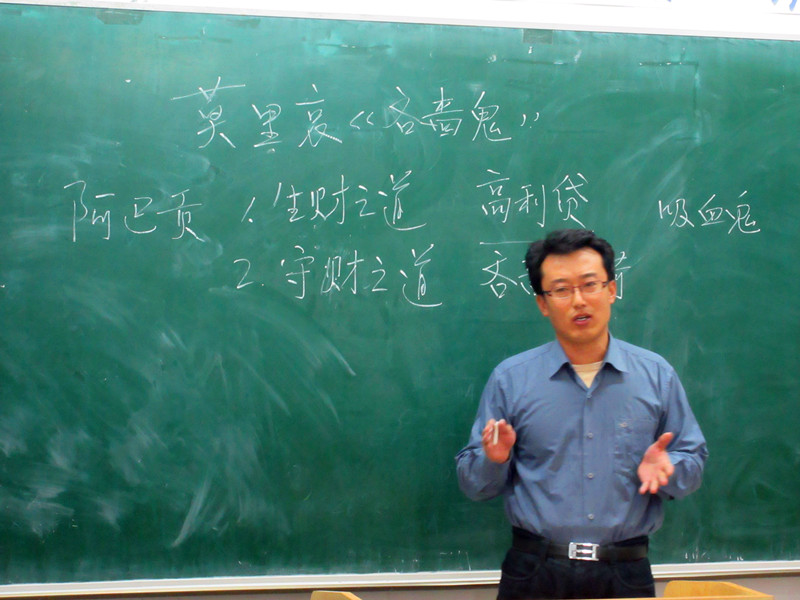 莫里哀《吝啬鬼》
阿巴贡 1.生财之道 高利贷 吸血鬼
2.守财之道 吝